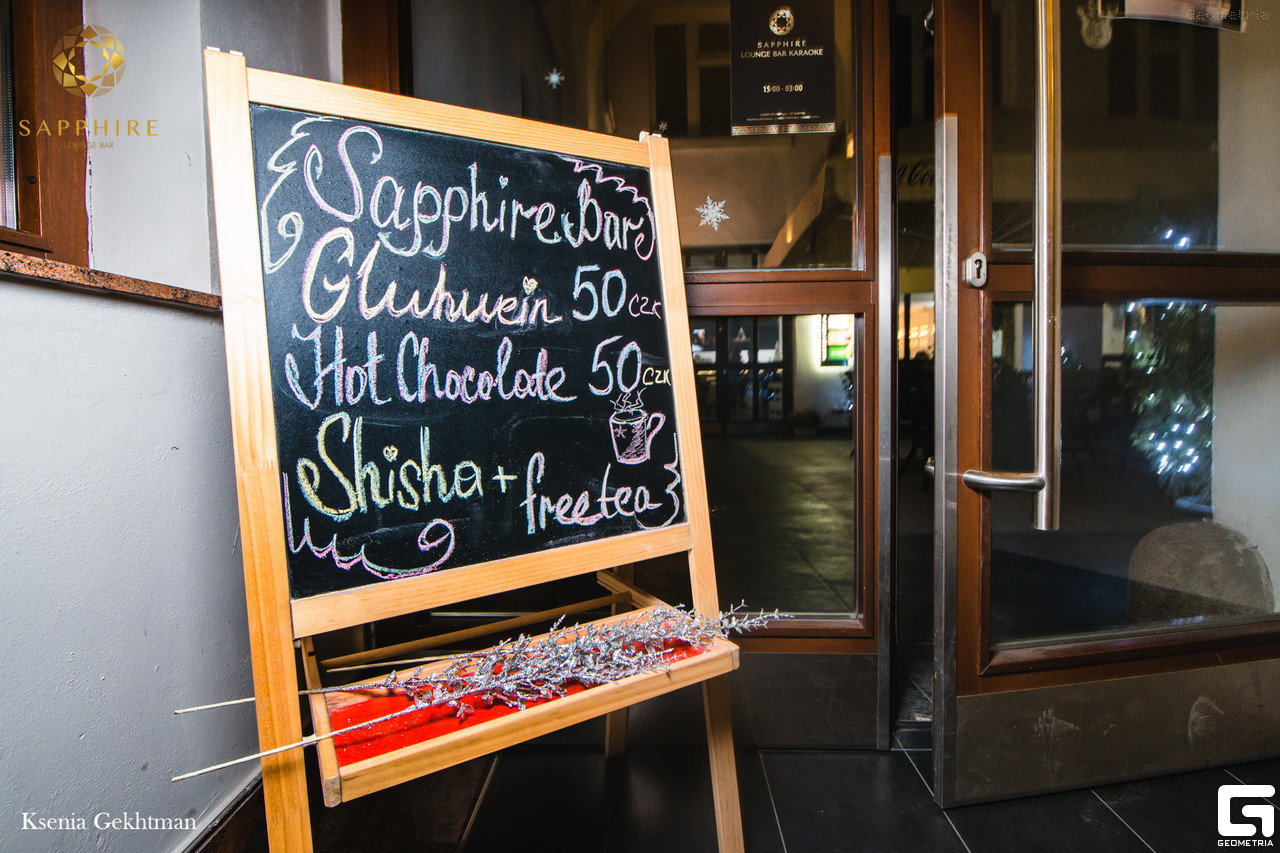 Geometria
SAPPHIRE
LOUNGE BAR
SAPPHIRE
LOUNGE BAR KARAOKE
15:00 - 03:00
Sapphire Bar
Gluhwein 50 CZK
Hot Chocolate 50 CZK
Shisha + free tea
Ksenia Gekhtman
GEOMETRIA